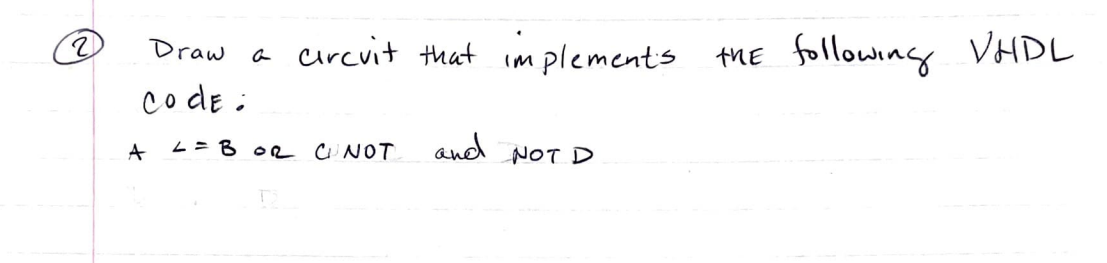 2 Draw a circuit that implements the following VHDL
code:
A <= B OR C NOT and NOT D